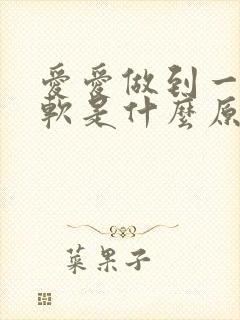 愛愛做到一
軟是什麼原
菜果子